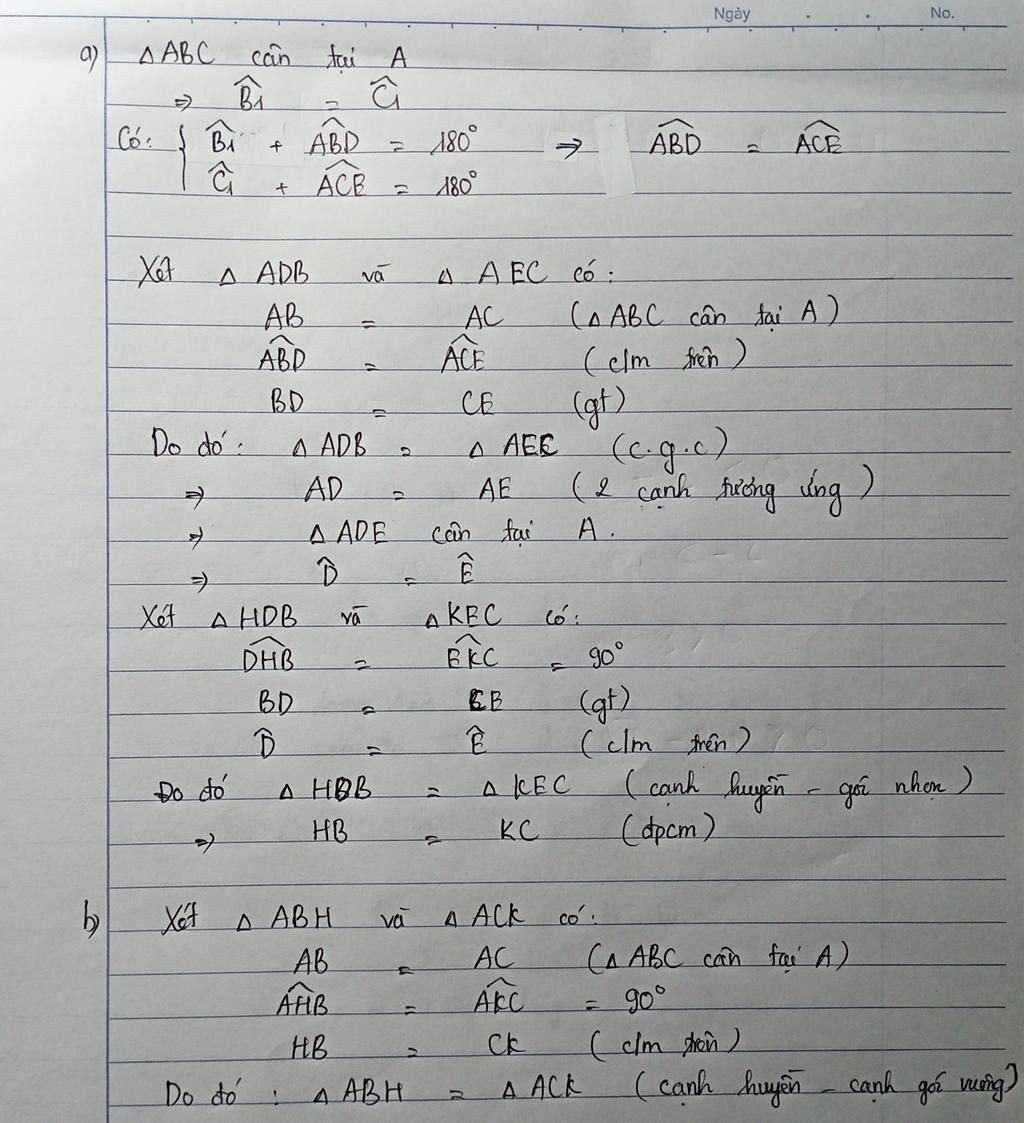 Ngày . . No.
a) △ ABC cân tại A
⇒ B̂₁ = Ĉ₁
Có: { B̂₁ + ABD̂ = 180° ⇒ ABD̂ = ACÊ
Ĉ₁ + ACÊ = 180°
Xét △ ADB và △ AEC có:
AB = AC (△ ABC cân tại A)
ABD̂ = ACÊ (c/m trên)
BD = CE (gt)
Do đó: △ ADB = △ AEC (c.g.c)
⇒ AD = AE (2 cạnh tương ứng)
⇒ △ ADE cân tại A.
⇒ D̂ = Ê
Xét △ HDB và △ KEC có:
DHB̂ = EKĈ = 90°
BD = EB (gt)
D̂ = Ê (c/m trên)
Do đó △ HDB = △ KEC (cạnh huyền - góc nhọn)
⇒ HB = KC (đpcm)
b) Xét △ ABH và △ ACK có:
AB = AC (△ ABC cân tại A)
AHB̂ = AKĈ = 90°
HB = CK (c/m trên)
Do đó : △ ABH = △ ACK (cạnh huyền - cạnh góc vuông)